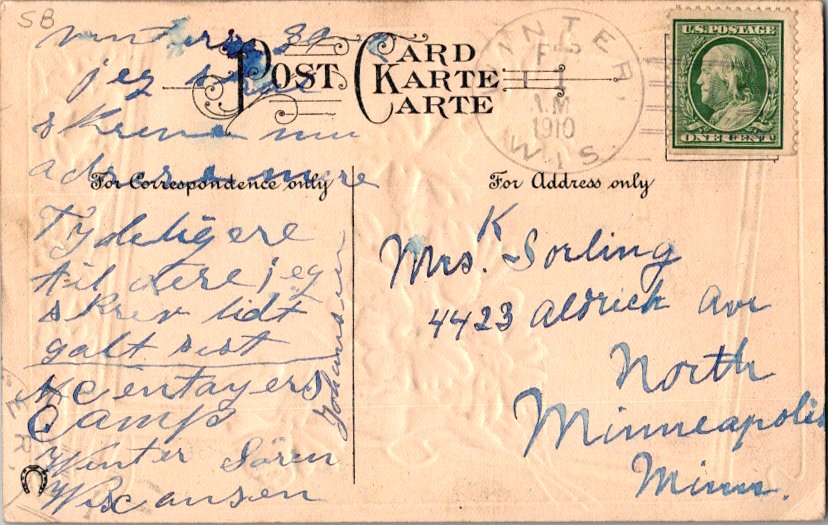 SB
POST CARD
KARTE
CARTE
WINTER,
1
AM
1910
WIS.
U.S. POSTAGE
ONE CENT
For Correspondence only
For Address only
jeg
skrive mu
adress mere
Tydeligere
til dere jeg
skrev lidt
galt sist
Mc entayers
Camp
Winter Sören
Wiscansen
Johansen
Mrs. K Sorling
4423 Aldrich Ave
North
Minneapolis
Minn.